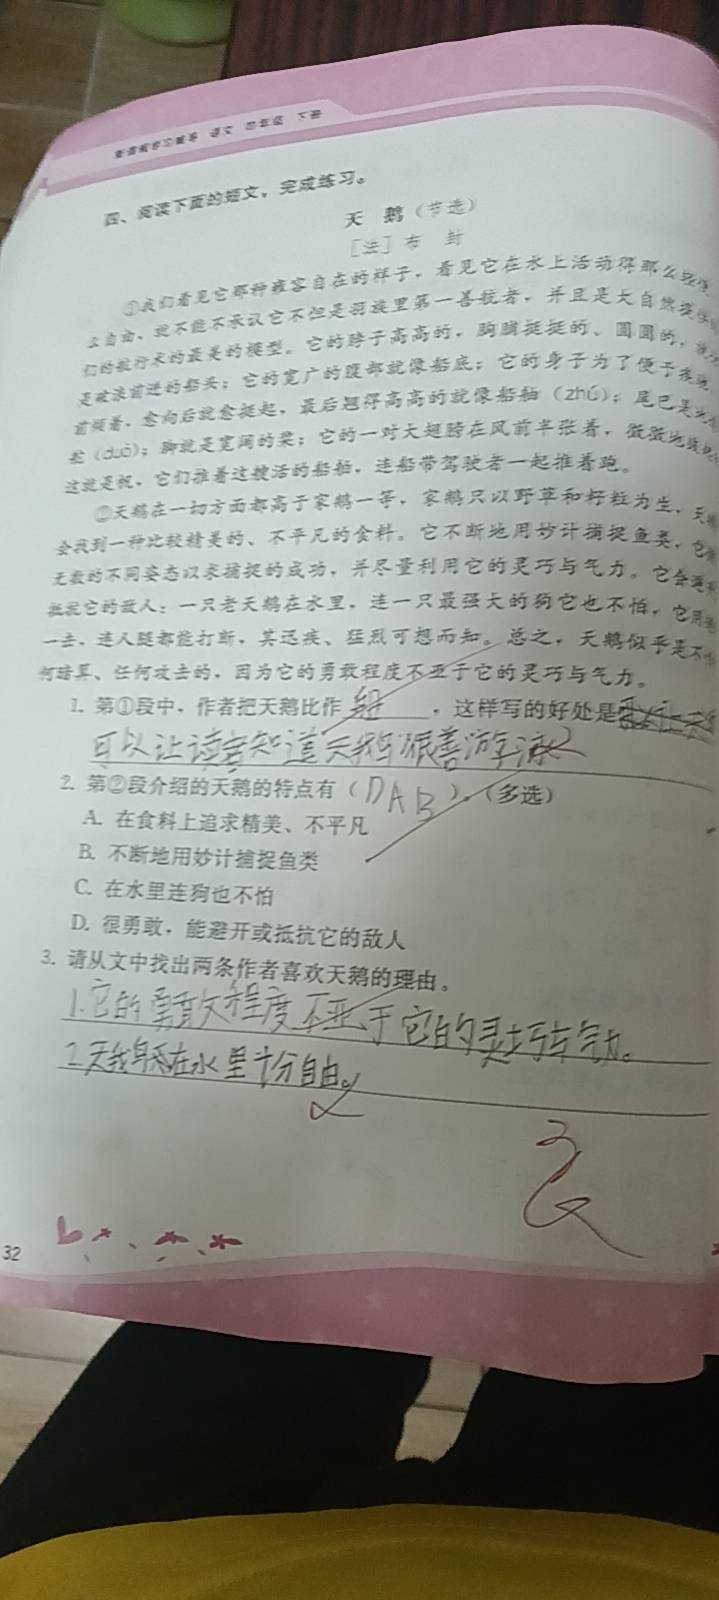 语文 四年级 下册
四、阅读下面的短文，完成练习。
天 鹅（节选）
［法］布 封
①我们看见它那种雍容自在的样子，看见它在水上活动得那么轻便
么自由，就不能不承认它不但是羽族里第一善航者，并且是大自然提供
们的航行术的最美的模型。它的脖子高高的，胸脯挺挺的、圆圆的，
是破浪前进的船头；它的宽广的腹部就像船底；它的身子为了便于疾驶
前倾着，愈向后就愈挺起，最后翘得高高的就像船舳（zhú）；尾巴是
（duò）；脚就是宽阔的桨；它的一对大翅膀在风前半张着，微微地
这就是帆，它们推着这艘活的船舶，连船带驾驶者一起推着跑。
②天鹅在一切方面都高于家鹅一等，家鹅只以野草和籽粒为生，天
会找到一种比较精美的、不平凡的食料。它不断地用妙计捕捉鱼类，它
无数的不同姿态以求捕捉的成功，并尽量利用它的灵巧与气力。它会避
抵抗它的敌人：一只老天鹅在水里，连一只最强大的狗它也不怕，它用
一击，连人腿都能打断，其迅疾、猛烈可想而知。总之，天鹅似乎是不
何暗算、任何攻击的，因为它的勇敢程度不亚于它的灵巧与气力。
1. 第①段中，作者把天鹅比作 船 ，这样写的好处是
可以让读者知道天鹅很善游泳
2. 第②段介绍的天鹅的特点有（DAB）。（多选）
A. 在食料上追求精美、不平凡
B. 不断地用妙计捕捉鱼类
C. 在水里连狗也不怕
D. 很勇敢，能避开或抵抗它的敌人
3. 请从文中找出两条作者喜欢天鹅的理由。
1.它的勇敢程度不亚于它的灵巧与气力。
2.天鹅在水里十分自由。
32